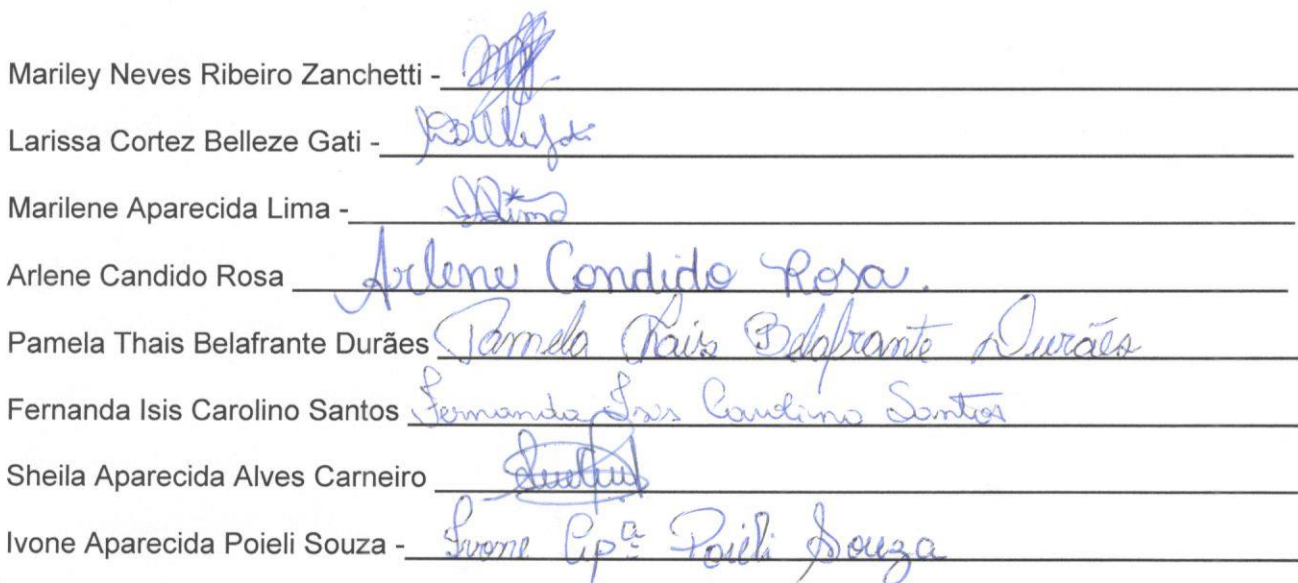 Mariley Neves Ribeiro Zanchetti -
Larissa Cortez Belleze Gati -
Marilene Aparecida Lima - Lima
Arlene Candido Rosa Arlene Candido Rosa.
Pamela Thais Belafrante Durães Pamela Thais Belafrante Durães
Fernanda Isis Carolino Santos Fernanda Isis Carolino Santos
Sheila Aparecida Alves Carneiro
Ivone Aparecida Poieli Souza - Ivone Apª Poieli Souza